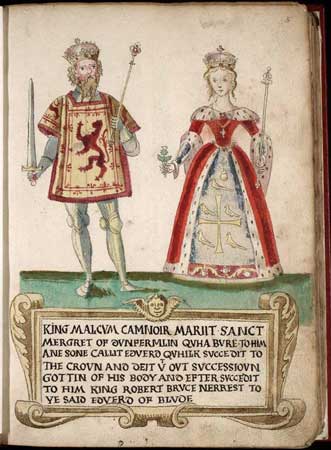 KING MALCVM CAMNOIR MARIIT SANCT
MERGRET OF DVNFERMLIN QVHA BVRE TO HIM
ANE SONE CALLIT EDVERD QVHILK SVCCEDIT TO
THE CROVN AND DEIT V̄ OVT SVCCESSIOVN
GOTTIN OF HIS BODY AND EFTER SVCCEDIT
TO HIM KING ROBERT BRVCE NERREST TO
YE SAID EDVERD OF BLVDE